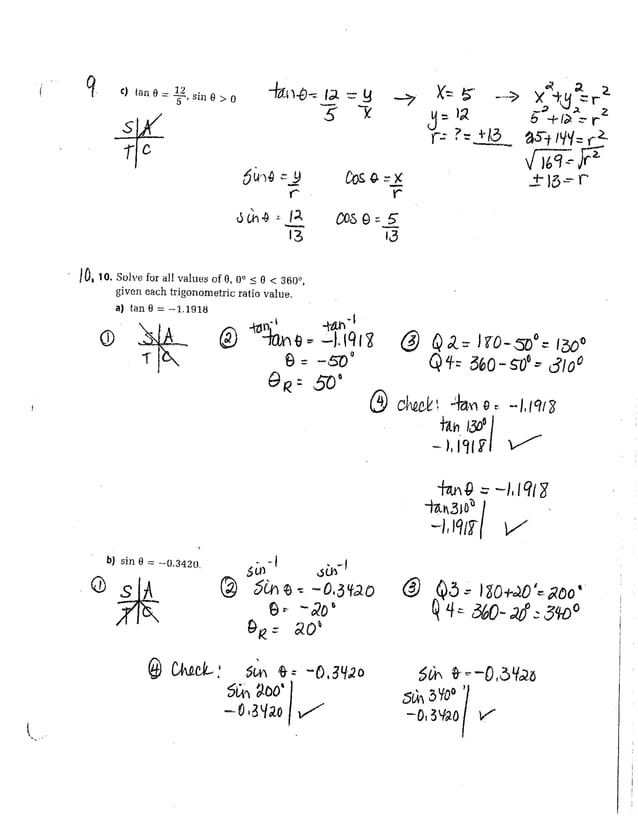 9. c) tan θ = 12/5, sin θ > 0
tan θ = 12/5 = y/x → x = 5 → x² + y² = r²
y = 12 5² + 12² = r²
r = ? = +13 25 + 144 = r²
√169 = √r²
± 13 = r
S A
T C
sin θ = y/r cos θ = x/r
sin θ = 12/13 cos θ = 5/13
10. 10. Solve for all values of θ, 0° ≤ θ < 360°,
given each trigonometric ratio value.
a) tan θ = −1.1918
① S A
T C
② tan⁻¹ tan⁻¹
tan θ = −1.1918
θ = −50°
θR = 50°
③ Q2 = 180 − 50° = 130°
Q4 = 360 − 50° = 310°
④ check: tan θ = −1.1918
tan 130°
−1.1918 ✓
tan θ = −1.1918
tan 310°
−1.1918 ✓
b) sin θ = −0.3420.
① S A
T C
② sin⁻¹ sin⁻¹
sin θ = −0.3420
θ = −20°
θR = 20°
③ Q3 = 180 + 20° = 200°
Q4 = 360 − 20° = 340°
④ Check: sin θ = −0.3420 sin θ = −0.3420
sin 200° sin 340°
−0.3420 ✓ −0.3420 ✓